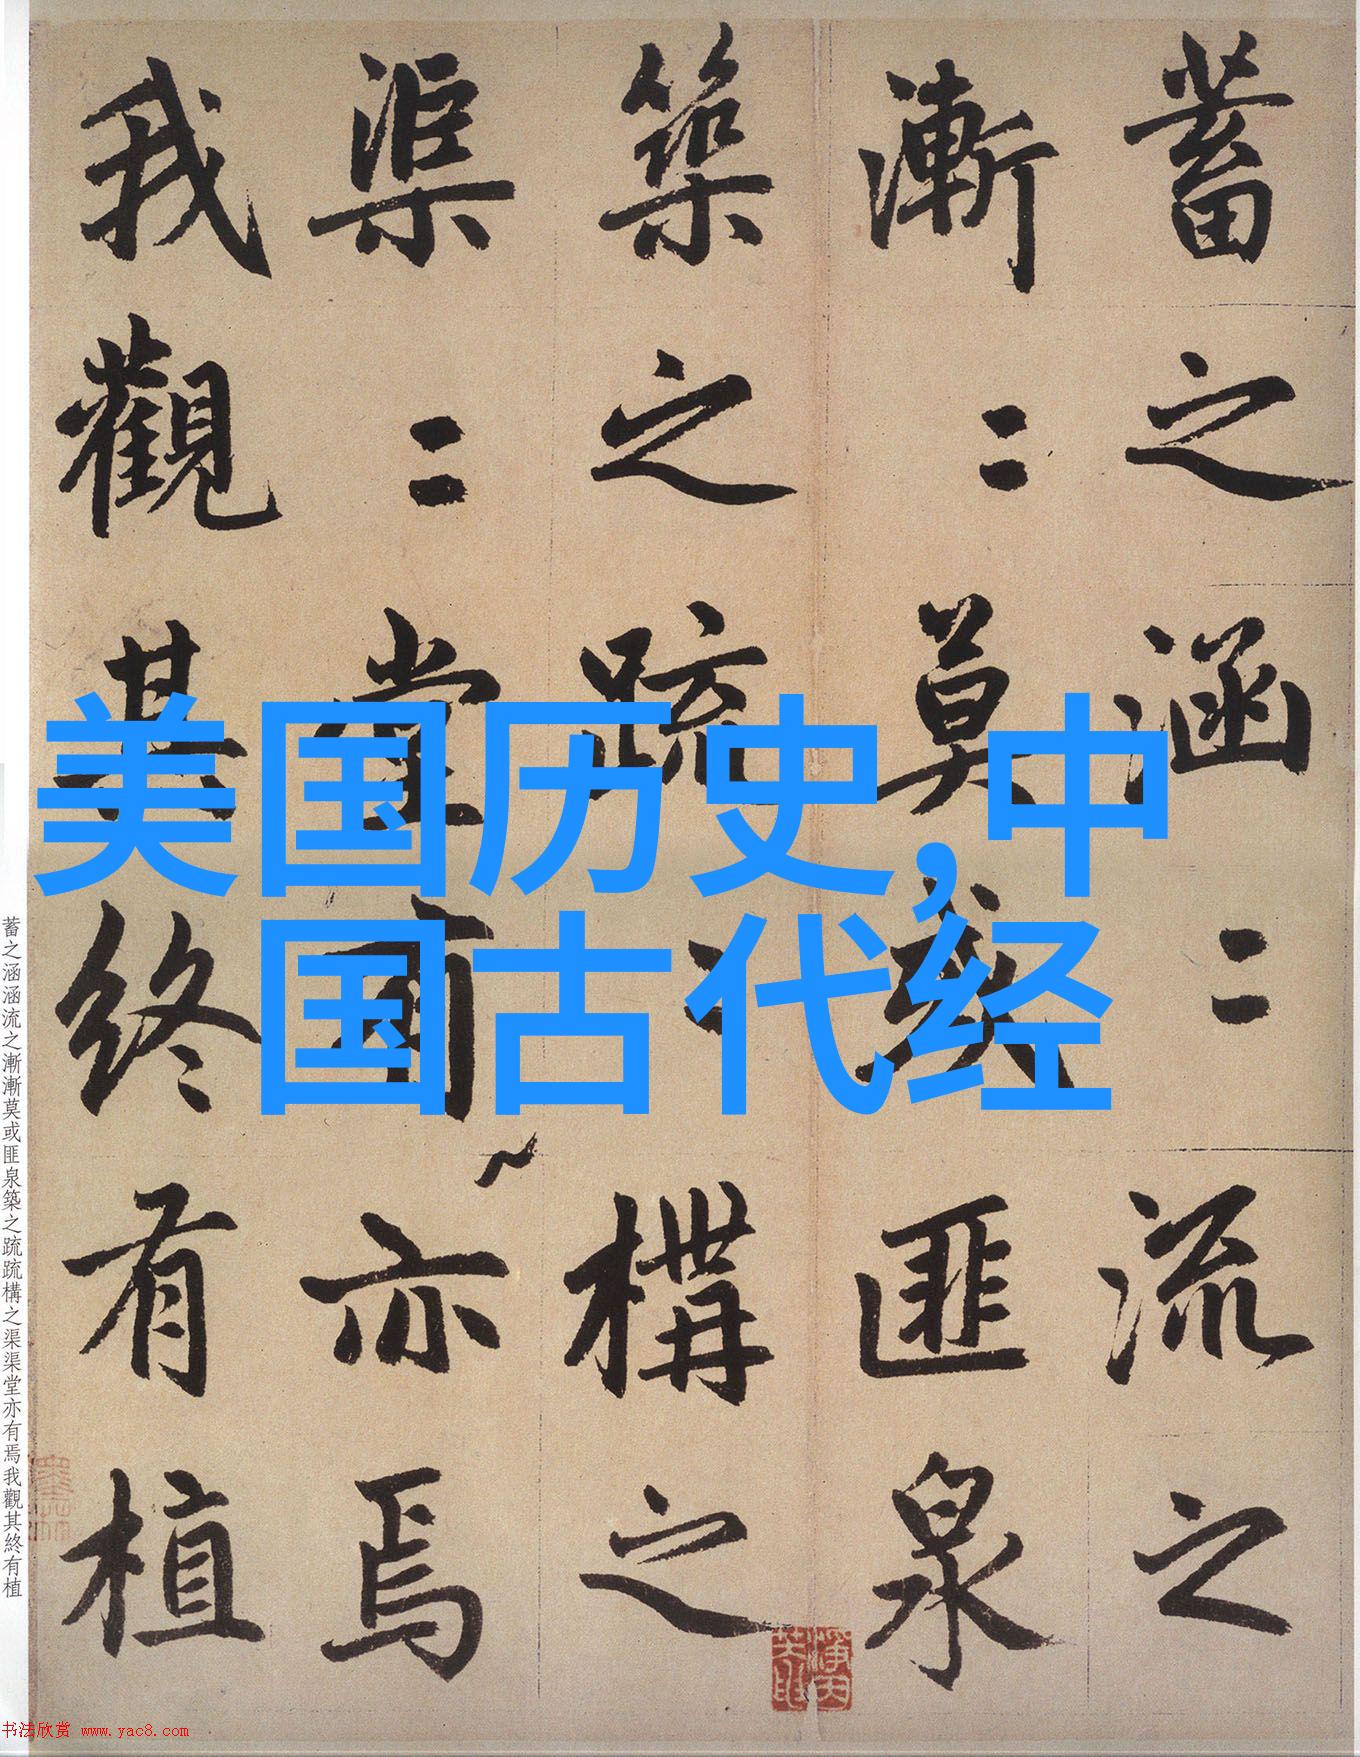 蓄之涵〻流之
漸〻莫或匪泉
築之疏〻構之
渠〻堂有亦焉
我觀其終有植
美国历史,中
国古代经
蓄之涵涵流之漸漸莫或匪泉築之疏疏構之渠渠堂亦有焉我觀其終有植
书法欣赏 www.yac8.com